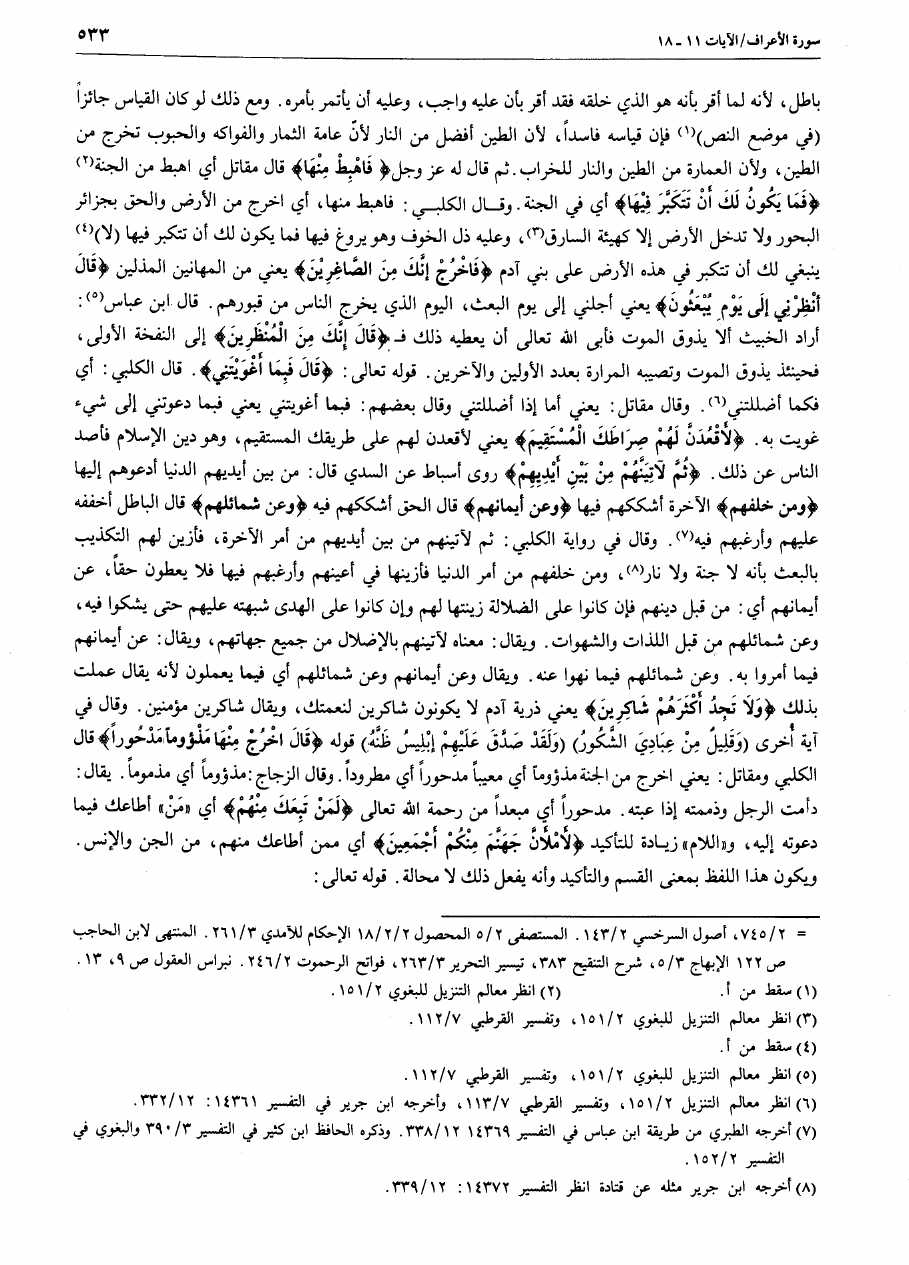 سورة الأعراف/الآيات ١١ - ١٨ ٥٣٣
باطل، لأنه لما أقر بأنه هو الذي خلقه فقد أقر بأن عليه واجب، وعليه أن يأتمر بأمره. ومع ذلك لو كان القياس جائزاً
(في موضع النص)(١) فإن قياسه فاسداً، لأن الطين أفضل من النار لأنّ عامة الثمار والفواكه والحبوب تخرج من
الطين، ولأن العمارة من الطين والنار للخراب. ثم قال له عز وجل ﴿فَاهْبِطْ مِنْهَا﴾ قال مقاتل أي اهبط من الجنة(٢)
﴿فَمَا يَكُونُ لَكَ أَنْ تَتَكَبَّرَ فِيْهَا﴾ أي في الجنة. وقال الكلبي: فاهبط منها، أي اخرج من الأرض والحق بجزائر
البحور ولا تدخل الأرض إلا كهيئة السارق(٣)، وعليه ذل الخوف وهو يروغ فيها فما يكون لك أن تتكبر فيها (لا)(٤)
ينبغي لك أن تتكبر في هذه الأرض على بني آدم ﴿فَاخْرُجْ إِنَّكَ مِنَ الصَّاغِرِيْنَ﴾ يعني من المهانين المذلين ﴿قَالَ
أَنْظِرْنِي إِلَى يَوْمِ يُبْعَثُونَ﴾ يعني أجلني إلى يوم البعث، اليوم الذي يخرج الناس من قبورهم. قال ابن عباس(٥):
أراد الخبيث ألا يذوق الموت فأبى الله تعالى أن يعطيه ذلك فـ ﴿قَالَ إِنَّكَ مِنَ الْمُنْظَرِينَ﴾ إلى النفخة الأولى،
فحينئذ يذوق الموت وتصيبه المرارة بعدد الأولين والآخرين. قوله تعالى: ﴿قَالَ فَبِمَا أَغْوَيْتَنِي﴾. قال الكلبي: أي
فكما أضللتني(٦). وقال مقاتل: يعني أما إذا أضللتني وقال بعضهم: فبما أغويتني يعني فبما دعوتني إلى شيء
غويت به. ﴿لَأَقْعُدَنَّ لَهُمْ صِرَاطَكَ الْمُسْتَقِيمَ﴾ يعني لأقعدن لهم على طريقك المستقيم، وهو دين الإسلام فأصد
الناس عن ذلك. ﴿ثُمَّ لَآتِيَنَّهُمْ مِنْ بَيْنِ أَيْدِيهِمْ﴾ روى أسباط عن السدي قال: من بين أيديهم الدنيا أدعوهم إليها
﴿ومن خلفهم﴾ الآخرة أشككهم فيها ﴿وعن أيمانهم﴾ قال الحق أشككهم فيه ﴿وعن شمائلهم﴾ قال الباطل أخففه
عليهم وأرغبهم فيه(٧). وقال في رواية الكلبي: ثم لآتينهم من بين أيديهم من أمر الآخرة، فأزين لهم التكذيب
بالبعث بأنه لا جنة ولا نار(٨)، ومن خلفهم من أمر الدنيا فأزينها في أعينهم وأرغبهم فيها فلا يعطون حقاً، عن
أيمانهم أي: من قبل دينهم فإن كانوا على الضلالة زينتها لهم وإن كانوا على الهدى شبهته عليهم حتى يشكوا فيه،
وعن شمائلهم من قبل اللذات والشهوات. ويقال: معناه لآتينهم بالإضلال من جميع جهاتهم، ويقال: عن أيمانهم
فيما أمروا به. وعن شمائلهم فيما نهوا عنه. ويقال وعن أيمانهم وعن شمائلهم أي فيما يعملون لأنه يقال عملت
بذلك ﴿وَلَا تَجِدُ أَكْثَرَهُمْ شَاكِرِينَ﴾ يعني ذرية آدم لا يكونون شاكرين لنعمتك، ويقال شاكرين مؤمنين. وقال في
آية أخرى (وَقَلِيلٌ مِنْ عِبَادِيَ الشَّكُورُ) (وَلَقَدْ صَدَّقَ عَلَيْهِمْ إِبْلِيسُ ظَنَّهُ) قوله ﴿قَالَ اخْرُجْ مِنْهَا مَذْؤُوماً مَدْحُوراً﴾ قال
الكلبي ومقاتل: يعني اخرج من الجنة مذؤوماً أي معيباً مدحوراً أي مطروداً. وقال الزجاج: مذؤوماً أي مذموماً. يقال:
دأمت الرجل وذممته إذا عبته. مدحوراً أي مبعداً من رحمة الله تعالى ﴿لَمَنْ تَبِعَكَ مِنْهُمْ﴾ أي «مَنْ» أطاعك فيما
دعوته إليه، و«اللام» زيادة للتأكيد ﴿لَأَمْلَأَنَّ جَهَنَّمَ مِنْكُمْ أَجْمَعِينَ﴾ أي ممن أطاعك منهم، من الجن والإنس.
ويكون هذا اللفظ بمعنى القسم والتأكيد وأنه يفعل ذلك لا محالة. قوله تعالى:
= ٧٤٥/٢، أصول السرخسي ١٤٣/٢. المستصفى ٥/٢ المحصول ١٨/٢/٢ الإحكام للآمدي ٢٦١/٣. المنتهى لابن الحاجب
ص ١٢٢ الإبهاج ٥/٣، شرح التنقيح ٣٨٣، تيسير التحرير ٢٦٣/٣، فواتح الرحموت ٢٤٦/٢. نبراس العقول ص ٩، ١٣.
(١) سقط من أ. (٢) انظر معالم التنزيل للبغوي ١٥١/٢.
(٣) انظر معالم التنزيل للبغوي ١٥١/٢، وتفسير القرطبي ١١٢/٧.
(٤) سقط من أ.
(٥) انظر معالم التنزيل للبغوي ١٥١/٢، وتفسير القرطبي ١١٢/٧.
(٦) انظر معالم التنزيل ١٥١/٢، وتفسير القرطبي ١١٣/٧، وأخرجه ابن جرير في التفسير ١٤٣٦١: ٣٣٢/١٢.
(٧) أخرجه الطبري من طريقة ابن عباس في التفسير ١٤٣٦٩ ٣٣٨/١٢. وذكره الحافظ ابن كثير في التفسير ٣٩٠/٣ والبغوي في
التفسير ١٥٢/٢.
(٨) أخرجه ابن جرير مثله عن قتادة انظر التفسير ١٤٣٧٢: ٣٣٩/١٢.